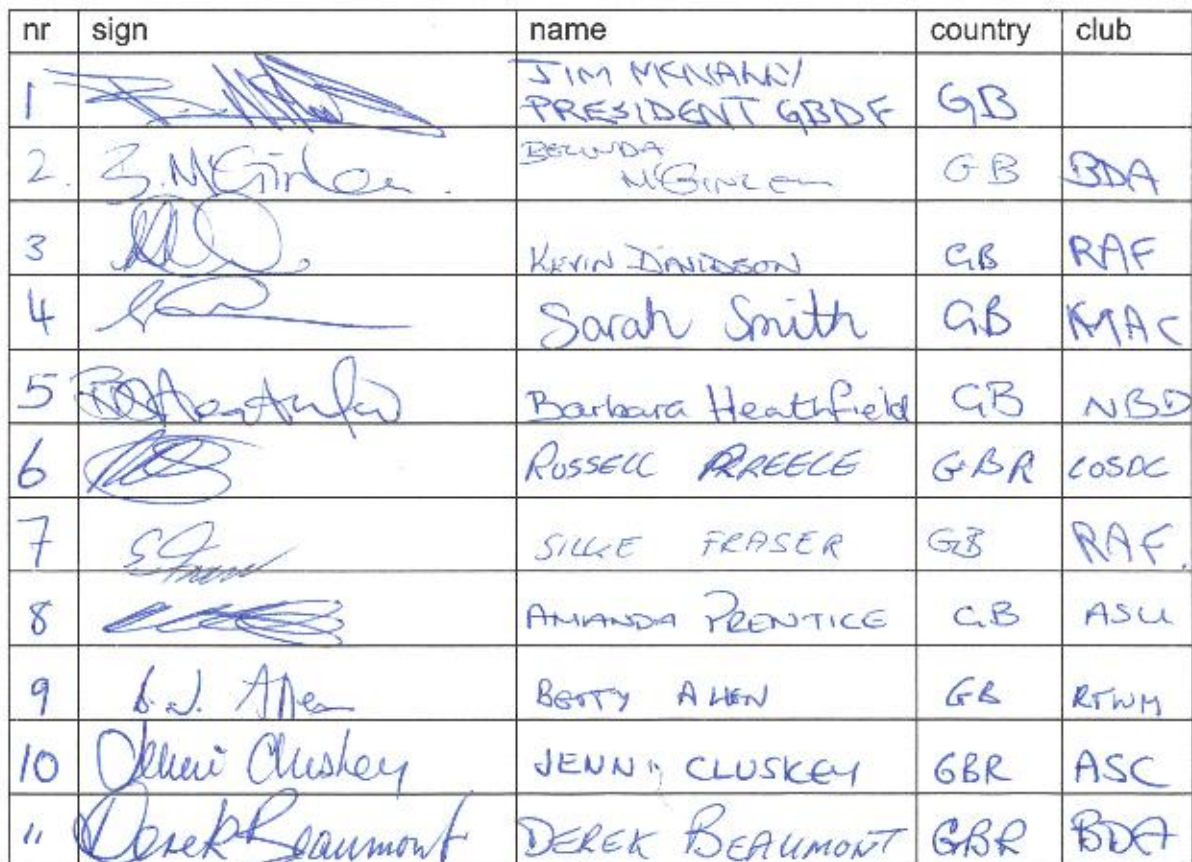 nr sign name country club
1 JIM MCNALLY
PRESIDENT GBDF GB
2. B. McGinley. BELINDA
McGINLEY GB BDA
3 KEVIN DAVIDSON GB RAF
4 Sarah Smith GB KMAC
5 Barbara Heathfield GB NBD
6 RUSSELL GBR COSDC
7 SILKE FRASER GB RAF.
8 AMANDA PRENTICE GB ASU
9 B.J. Allen BETTY ALLEN GB RTWM
10 Jenni Cluskey JENNI CLUSKEY GBR ASC
11 Derek Beaumont DEREK BEAUMONT GBR BDA